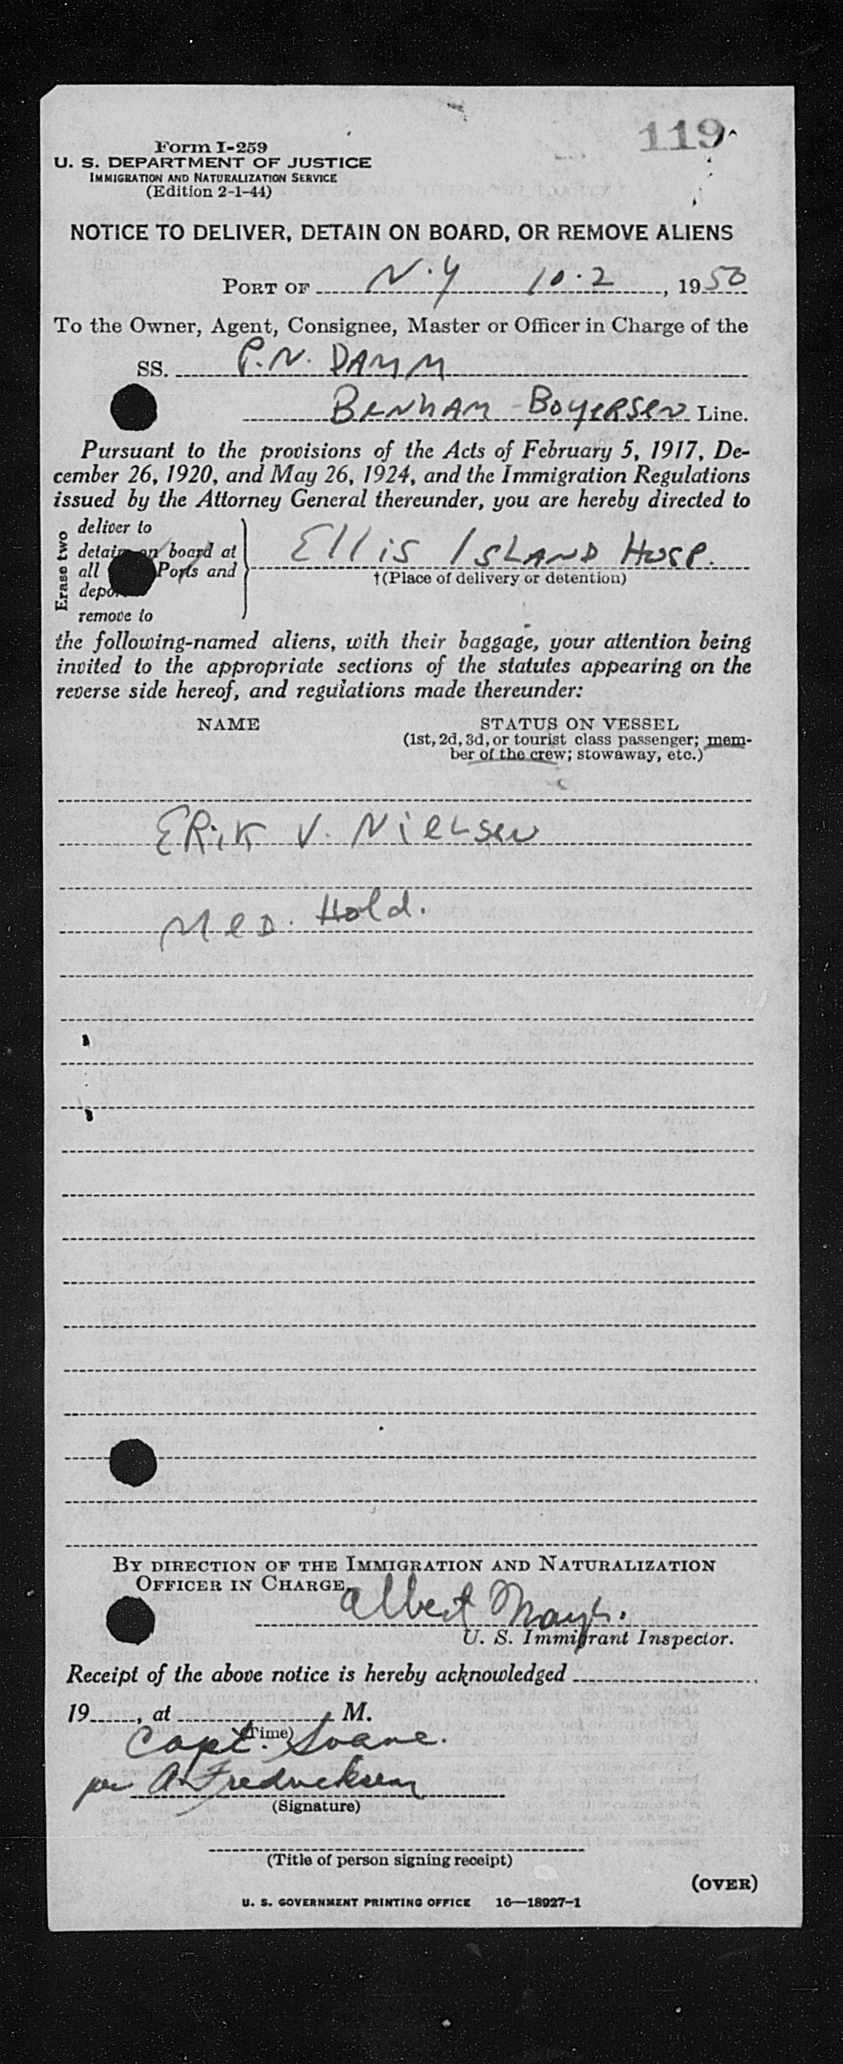 119
Form I-259
U. S. DEPARTMENT OF JUSTICE
IMMIGRATION AND NATURALIZATION SERVICE
(Edition 2-1-44)
NOTICE TO DELIVER, DETAIN ON BOARD, OR REMOVE ALIENS
PORT OF N.Y 10.2, 1950
To the Owner, Agent, Consignee, Master or Officer in Charge of the
SS. P.N. DAMM
BENHAM-BOYERSEN Line.
Pursuant to the provisions of the Acts of February 5, 1917, De-
cember 26, 1920, and May 26, 1924, and the Immigration Regulations
issued by the Attorney General thereunder, you are hereby directed to
Erase two
deliver to
detain on board at
all Ports and
remove to
Ellis ISLAND Hosp.
†(Place of delivery or detention)
the following-named aliens, with their baggage, your attention being
invited to the appropriate sections of the statutes appearing on the
reverse side hereof, and regulations made thereunder:
NAME
STATUS ON VESSEL
(1st, 2d, 3d, or tourist class passenger; mem-
ber of the crew; stowaway, etc.)
ERIK V. NIELSEN
MED. Hold.
BY DIRECTION OF THE IMMIGRATION AND NATURALIZATION
OFFICER IN CHARGE,
Albert
U. S. Immigrant Inspector.
Receipt of the above notice is hereby acknowledged
19, at M.
(Time)
Capt. Soane.
per A. Fredricksen
(Signature)
(Title of person signing receipt)
(OVER)
U. S. GOVERNMENT PRINTING OFFICE 16—18927-1